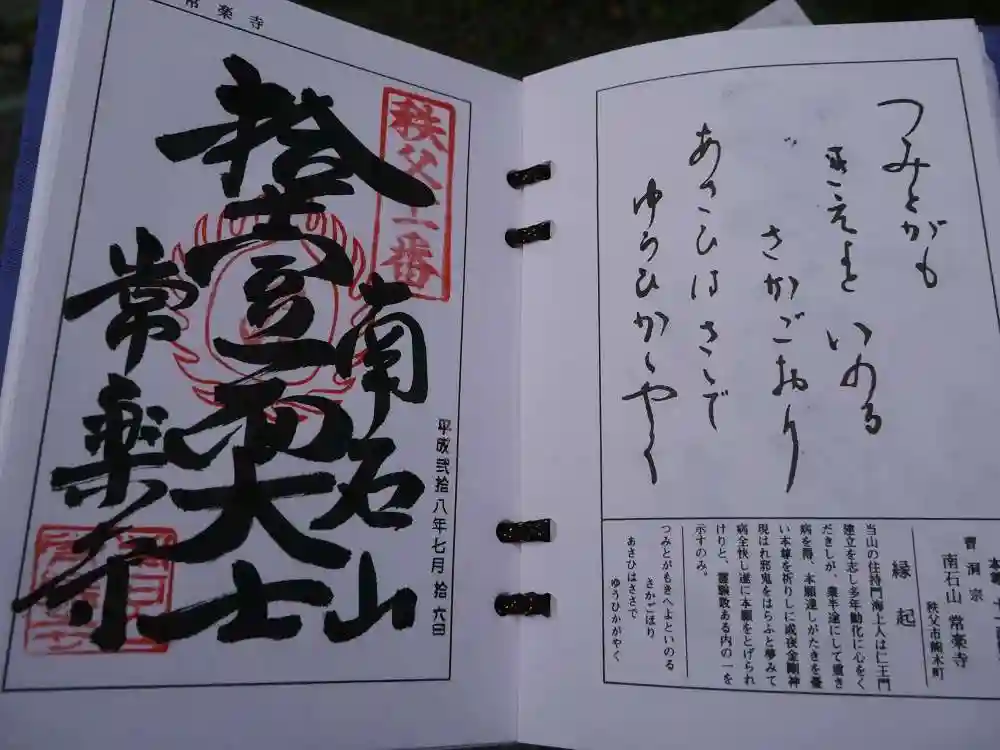 つみとがも
きえよと いのる
さかごおり
あさひはさゝで
ゆうひかゝやく
曹洞宗
南石山 常楽寺
秩父市熊木町
縁起
当山の住持門海上人は仁王門
建立を志し多年勧化に心をく
だきしが、業半途にして重き
病を得、本願達しがたきを憂
い本尊を祈りしに或夜金剛神
現はれ邪鬼をはらふと夢みて
病全快し遂に本願をとげられ
けりと、霊験数ある内の一を
示すのみ。
つみとがもきへよといのる
さかごほり
あさひはささで
ゆうひかがやく
常楽寺
秩父十一番
南石山
十一面大士
常楽寺
平成弐拾八年七月拾六日